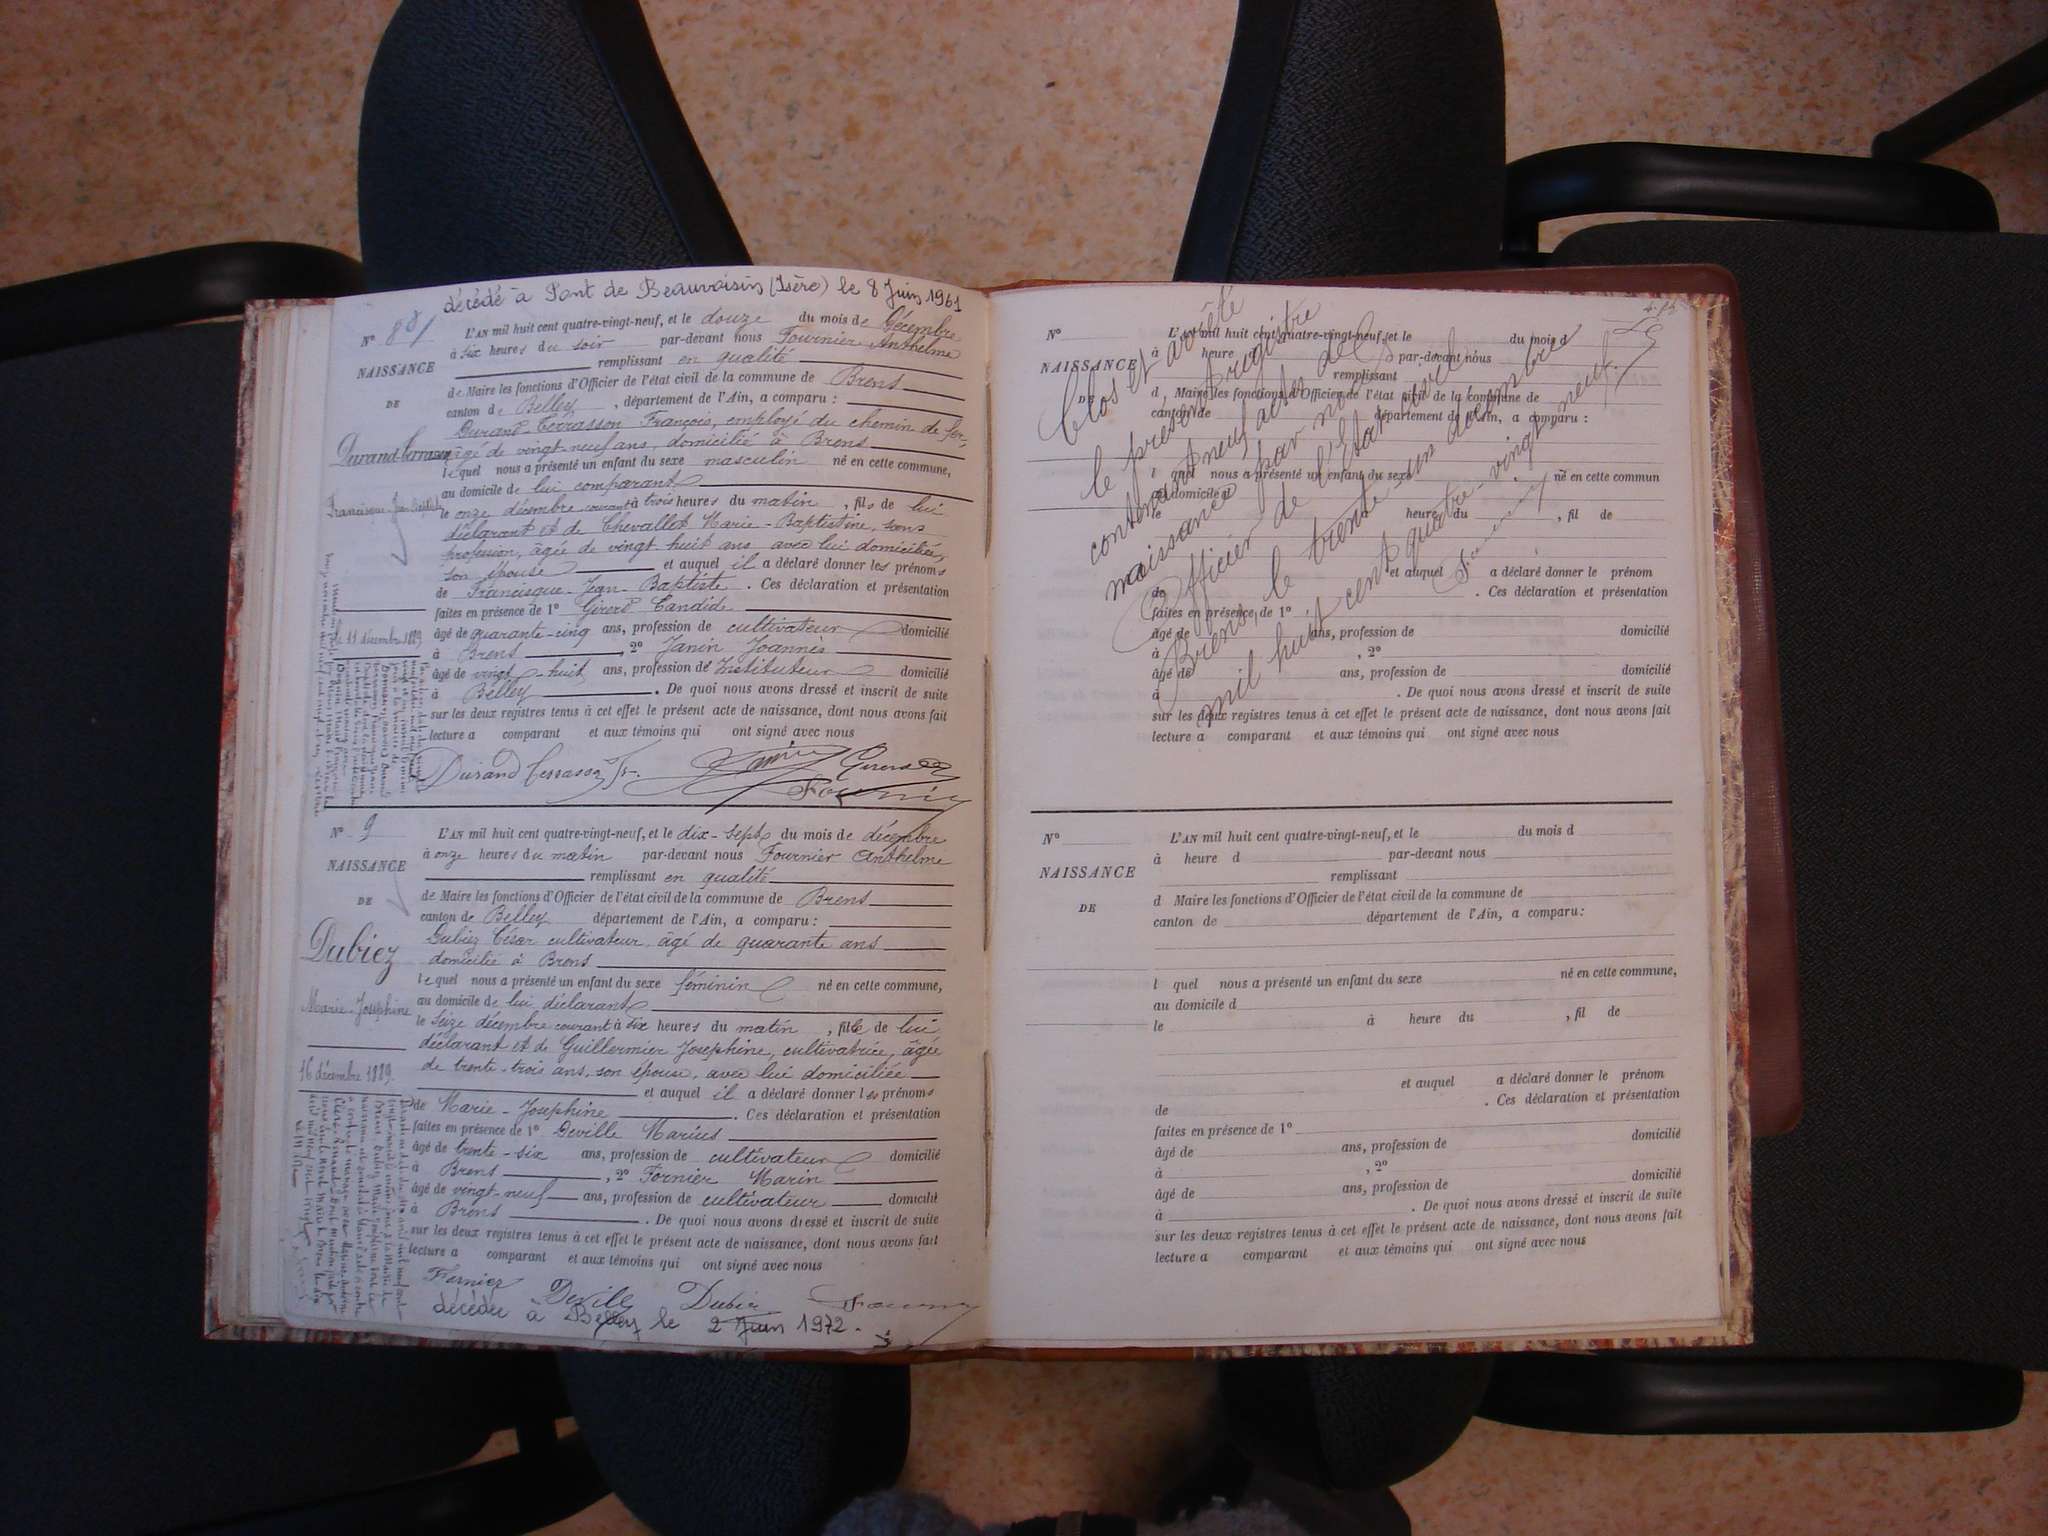 décédé à Pont de Beauvoisin (Isère) le 8 Juin 1961
N° 8
NAISSANCE
DE
Durand-Terrasson
Francisque-Jean-Baptiste
le 11 décembre 1889
L'AN mil huit cent quatre-vingt-neuf, et le douze du mois de Décembre
à six heures du soir par-devant nous Fournier Anthelme
remplissant en qualité
de Maire les fonctions d'Officier de l'état civil de la commune de Brens
canton de Belley, département de l'Ain, a comparu :
Durand-Terrasson François, employé du chemin de fer,
âgé de vingt-neuf ans, domicilié à Brens
lequel nous a présenté un enfant du sexe masculin né en cette commune,
au domicile de lui comparant
le onze décembre courant à trois heures du matin, fils de lui
déclarant et de Chevallet Marie-Baptistine, sans
profession, âgée de vingt huit ans avec lui domiciliée,
son épouse et auquel il a déclaré donner les prénoms
de Francisque-Jean-Baptiste. Ces déclaration et présentation
faites en présence de 1° Girerd Candide
âgé de quarante-cinq ans, profession de cultivateur domicilié
à Brens, 2° Janin Joannès
âgé de vingt-huit ans, profession d'Instituteur domicilié
à Belley. De quoi nous avons dressé et inscrit de suite
sur les deux registres tenus à cet effet le présent acte de naissance, dont nous avons fait
lecture a comparant et aux témoins qui ont signé avec nous
Durand Terrasson Fs. Janin Girerd
Fournier
N° 9
NAISSANCE
DE
Dubiez
Marie-Joséphine
16 décembre 1889.
L'AN mil huit cent quatre-vingt-neuf, et le dix-sept du mois de décembre
à onze heures du matin par-devant nous Fournier Anthelme
remplissant en qualité
de Maire les fonctions d'Officier de l'état civil de la commune de Brens
canton de Belley département de l'Ain, a comparu :
Dubiez César cultivateur, âgé de quarante ans
domicilié à Brens
lequel nous a présenté un enfant du sexe féminin né en cette commune,
au domicile de lui déclarant
le seize décembre courant à six heures du matin, fille de lui
déclarant et de Guillermier Josephine, cultivatrice, âgée
de trente-trois ans, son épouse, avec lui domiciliée
et auquel il a déclaré donner les prénoms
de Marie-Joséphine. Ces déclaration et présentation
faites en présence de 1° Deville Marius
âgé de trente-six ans, profession de cultivateur domicilié
à Brens, 2° Fornier Marin
âgé de vingt-neuf ans, profession de cultivateur domicilié
à Brens. De quoi nous avons dressé et inscrit de suite
sur les deux registres tenus à cet effet le présent acte de naissance, dont nous avons fait
lecture a comparant et aux témoins qui ont signé avec nous
Fornier Deville Dubiez Fournier
décédée à Belley le 2 Juin 1972.
Clos et arrêté
le présent registre
contenant neuf actes de
naissances par nous
Officier de l'état civil
Brens, le trente-un décembre
mil huit cent quatre-vingt neuf.
Fournier
N°
NAISSANCE
DE
L'AN mil huit cent quatre-vingt-neuf, et le du mois d
à heure par-devant nous
remplissant
d Maire les fonctions d'Officier de l'état civil de la commune de
canton de département de l'Ain, a comparu :
l quel nous a présenté un enfant du sexe né en cette commun
au domicile d
le heure du , fil de
et auquel a déclaré donner le prénom
de . Ces déclaration et présentation
faites en présence, de 1°
âgé de ans, profession de domicilié
à , 2°
âgé de ans, profession de domicilié
à . De quoi nous avons dressé et inscrit de suite
sur les deux registres tenus à cet effet le présent acte de naissance, dont nous avons fait
lecture a comparant et aux témoins qui ont signé avec nous
N°
NAISSANCE
DE
L'AN mil huit cent quatre-vingt-neuf, et le du mois d
à heure d par-devant nous
remplissant
d Maire les fonctions d'Officier de l'état civil de la commune de
canton de département de l'Ain, a comparu:
l quel nous a présenté un enfant du sexe né en cette commune,
au domicile d
le à heure du , fil de
et auquel a déclaré donner le prénom
de . Ces déclaration et présentation
faites en présence de 1°
âgé de ans, profession de domicilié
à , 2°
âgé de ans, profession de domicilié
à . De quoi nous avons dressé et inscrit de suite
sur les deux registres tenus à cet effet le présent acte de naissance, dont nous avons fait
lecture a comparant et aux témoins qui ont signé avec nous